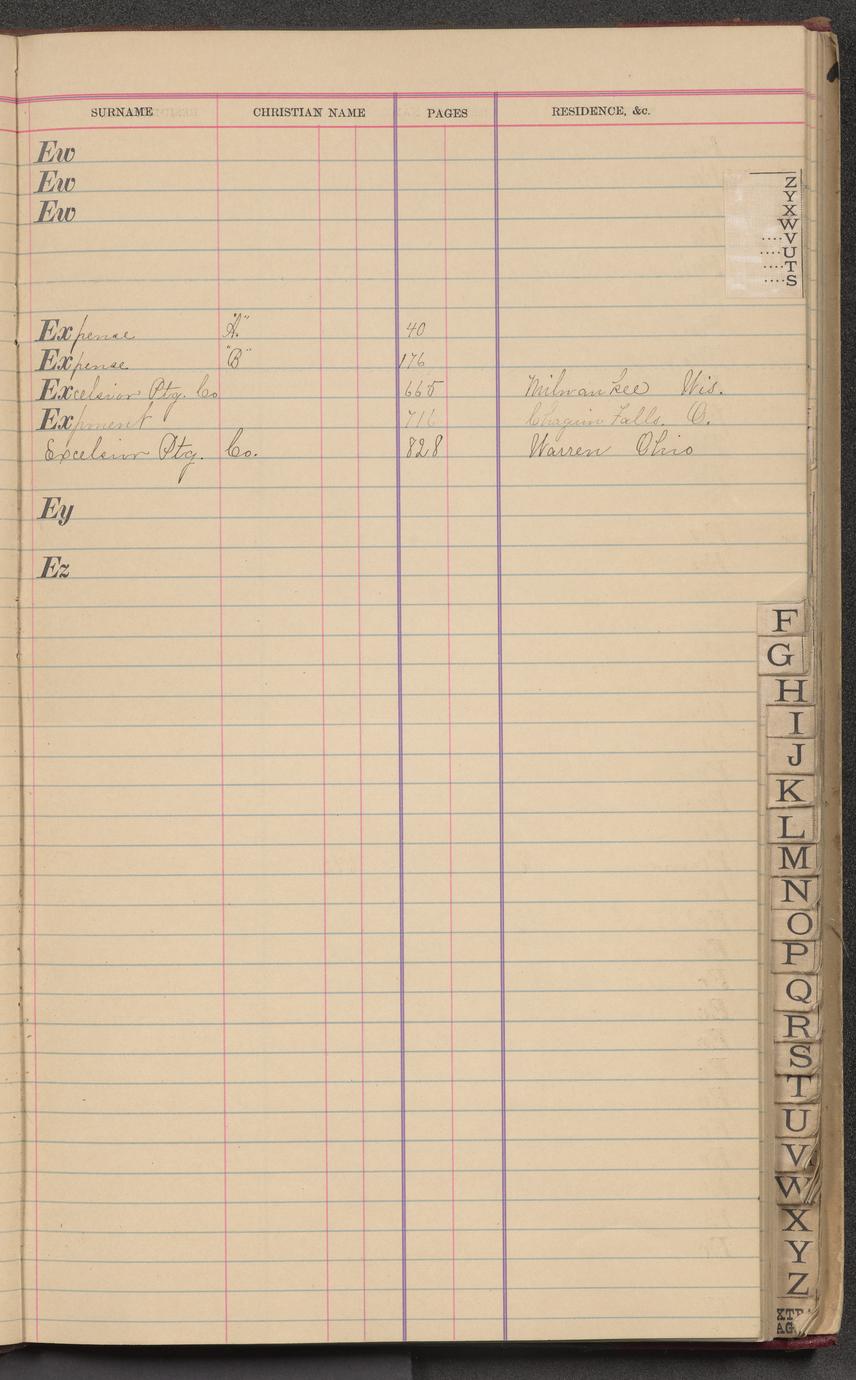 SURNAME CHRISTIAN NAME PAGES RESIDENCE, &c.
Ew
Ew
Ew
Z
Y
X
W
....V
....U
....T
....S
Expense "A" 40
Expense "B" 176
Excelsior Ptg. Co 665 Milwaukee Wis.
716 Chagrin Falls. O.
Excelsior Ptg. Co. 828 Warren Ohio
Ey
Ez
F
G
H
I
J
K
L
M
N
O
P
Q
R
S
T
U
V
W
X
Y
Z